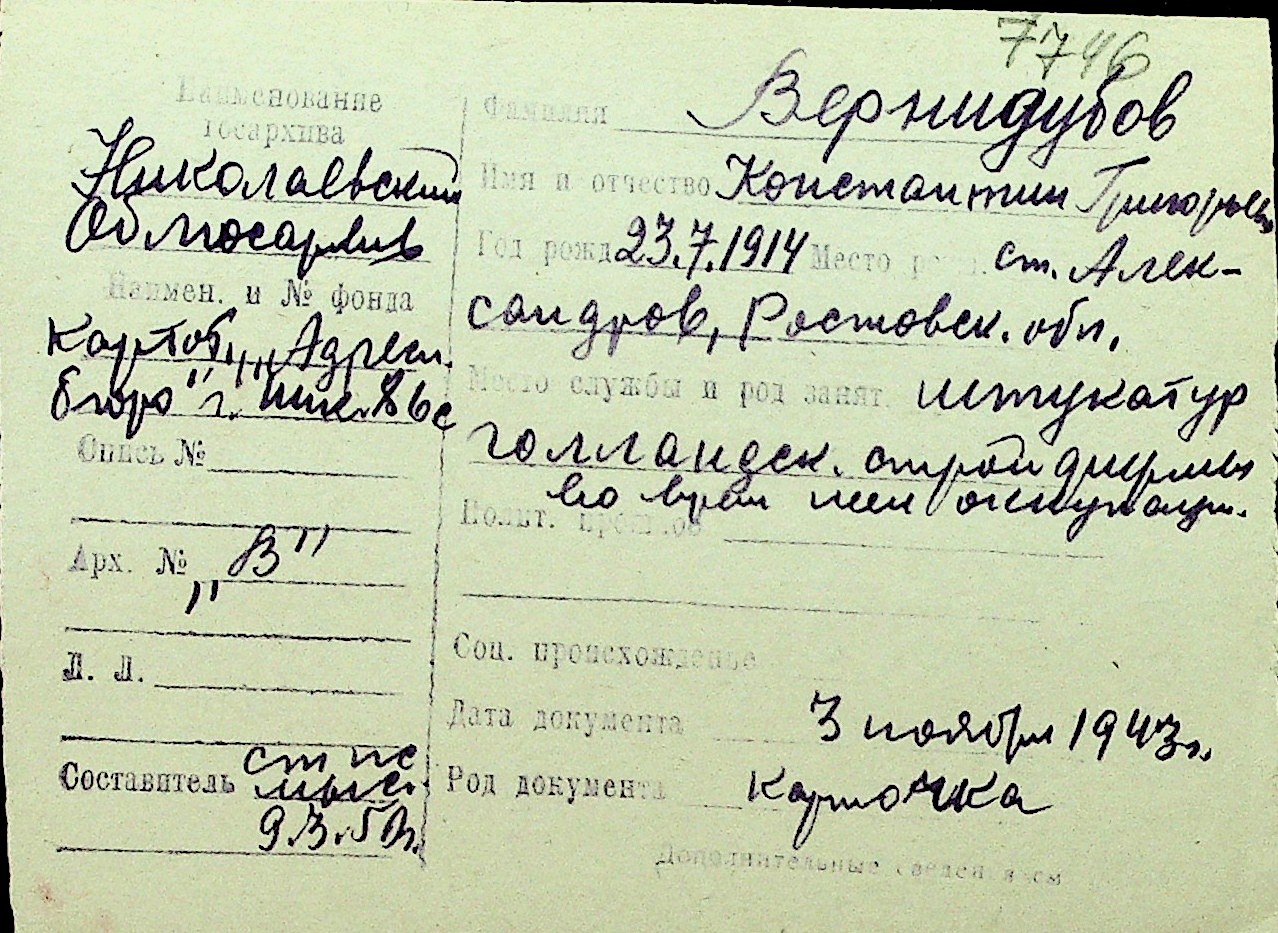 7746
Наименование
госархива
Николаевский
Облгосархив
Наимен. и № фонда
Картот. „Адресн.
бюро" г. Ник.
Опись №
Арх. № „В"
Л. Л.
Составитель ст нс
9.3.50г.
Фамилия Вернидубов
Имя и отчество Константин Григорьев
Год рожд. 23.7.1914 Место рожд. ст. Алек-
сандров, Ростовск. обл.
Место службы и род занят. штукатур
голландск. строй фирмы
во время нем оккупации.
Полит.
Соц. происхождение
Дата документа 3 ноября 1943г.
Род документа Карточка
Дополнительные сведения см